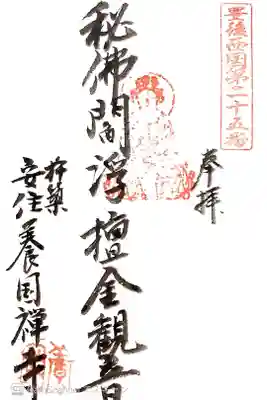 豊後西国第二十五番
奉拝
秘佛閻浮檀金観音
杵築
安住養国禅寺